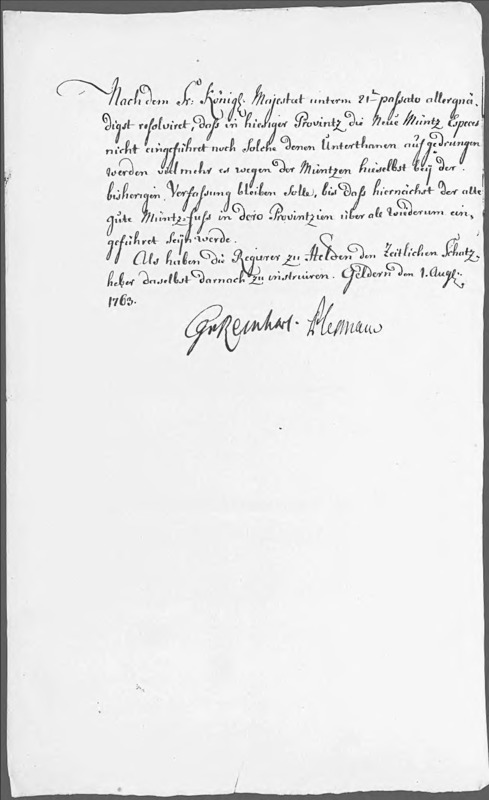 Nach dem Sr: Königl. Majestat unterm 21ten passato allergnä,
digst resolviret, daß in hiesiger Provintz die Neue Müntz Especes
nicht eingeführet noch Solche denen Unterthanen aufgedrungen
werden vielmehr es wegen der Müntzen hieselbst beÿ der
bisherigen Verfassung bleiben Solle, bis daß hiernächst der alte
gute Müntz-fuss in dero Provintzien über ale wiederum ein,
geführet Seÿn werde.
Als haben die Regierer zu Helden den Zeitlichen Schatz,
heber daselbst darnach zu instruiren. Geldern den 1. Aug.
1763.